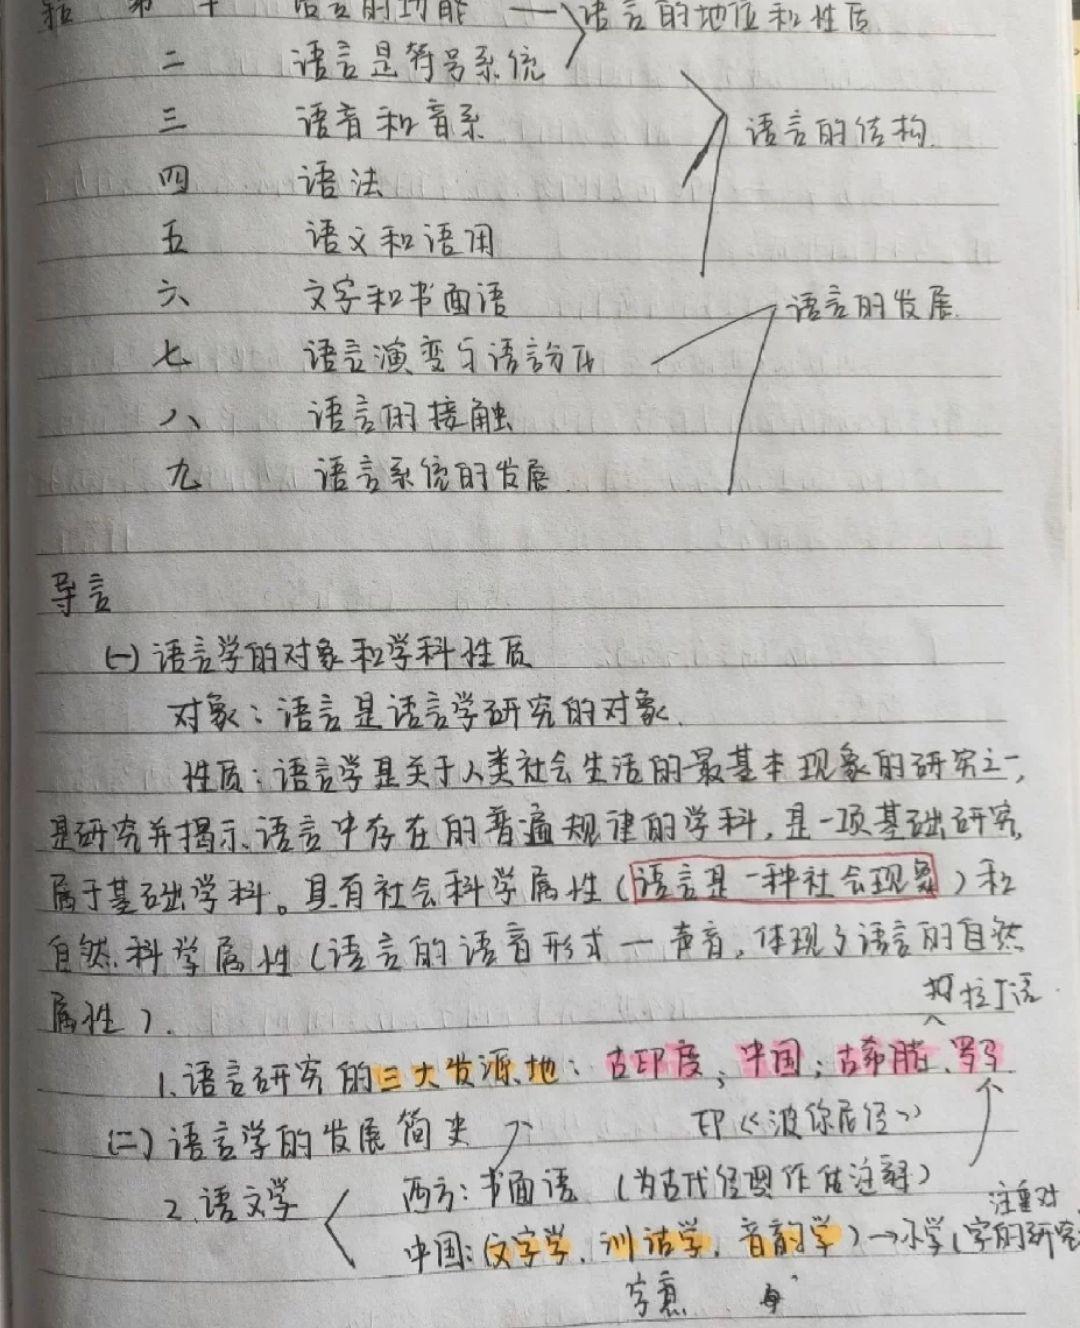 语言的功能 — 语言的地位和性质
二 语言是符号系统
三 语音和音系
语言的结构
四 语法
五 语义和语用
六 文字和书面语
语言的发展
七 语言演变与语言分化
八 语言的接触
九 语言系统的发展
导言
(一) 语言学的对象和学科性质
对象：语言是语言学研究的对象.
性质：语言学是关于人类社会生活的最基本现象的研究之一，
是研究并揭示语言中存在的普遍规律的学科，是一项基础研究，
属于基础学科。具有社会科学属性（语言是一种社会现象）和
自然科学属性（语言的语音形式一声音，体现了语言的自然
属性）.
拉丁语
1.语言研究的三大发源地：古印度；中国；古希腊、罗马
(二) 语言学的发展简史
2.语文学
西方：书面语（为古代经典作注释）
中国：(文字学，训诂学，音韵学)→小学(字的研究
注重对
字意